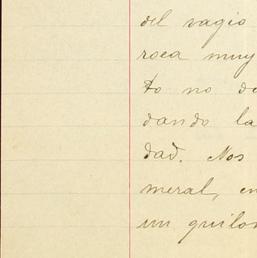 del vagio
roca muy
to no de
dando la
dad. Nos
meral, en
un quilo